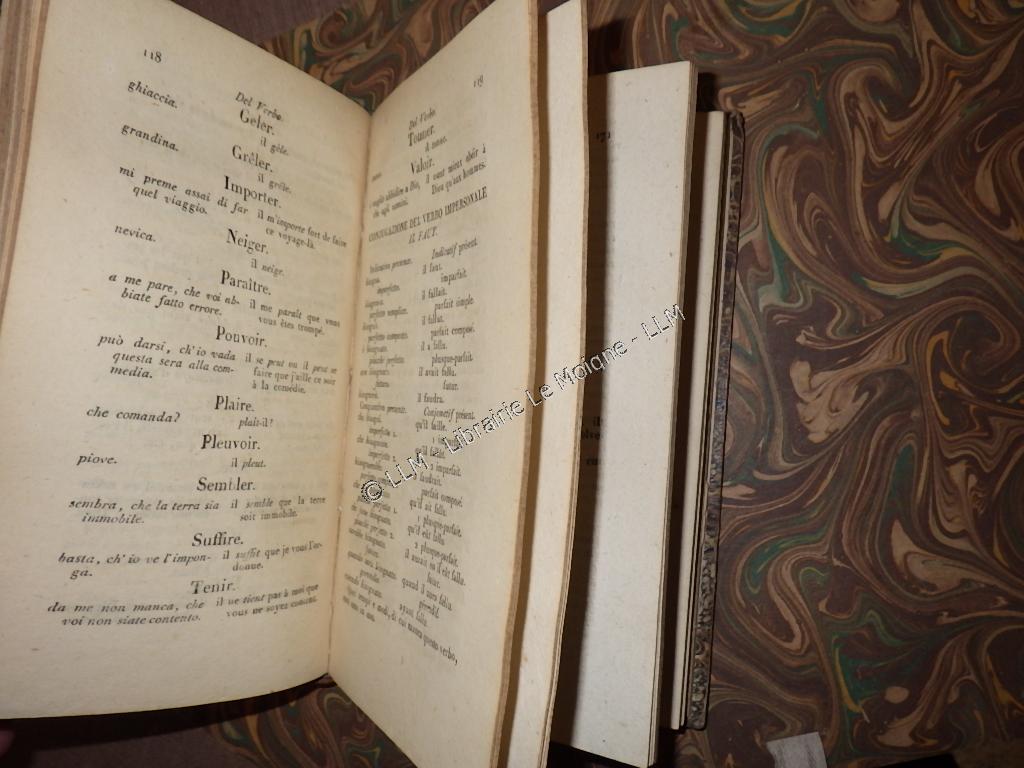 118
Del Verbo.
Geler.
ghiaccia.
il gèle.
Grêler.
grandina.
il grêle.
Importer.
mi preme assai di far il m'importe fort de faire
quel viaggio. ce voyage-là.
Neiger.
nevica.
il neige.
Paraître.
a me pare, che voi ab- il me paraît que vous
biate fatto errore. vous êtes trompé.
Pouvoir.
può darsi, ch'io vada il se peut ou il peut se
questa sera alla com- faire que j'aille ce soir
media. à la comédie.
Plaire.
che comanda? plait-il?
Pleuvoir.
piove. il pleut.
Sembler.
sembra, che la terra sia il semble que la terre
immobile. soit immobile.
Suffire.
basta, ch'io ve l'impon- il suffit que je vous l'or-
ga. donne.
Tenir.
da me non manca, che il ne tient pas à moi que
voi non siate contento. vous ne soyez content.
119
Del Verbo.
Tonner.
il tonne.
Valoir.
è meglio ubbidire a Dio, il vaut mieux obéir à
che agli uomini. Dieu qu'aux hommes.
CONJUGAZIONE DEL VERBO IMPERSONALE
IL FAUT.
Indicativo presente. Indicatif présent.
bisogna. il faut.
imperfetto. imparfait.
bisognava. il fallait.
perfetto semplice. parfait simple.
bisognò. il fallut.
perfetto composto. parfait composé.
il a fallu.
plusque-parfait.
il avait fallu.
futuro. futur.
il faudra.
Congiuntivo presente. Conjonctif présent.
che bisogni. qu'il faille.
imperfetto 1.
qu'il fallût.
imperfetto 2. 2 imparfait.
faudrait.
parfait composé.
qu'il ait fallu.
1 plusque-parfait.
qu'il eût fallu.
2 plusque-parfait.
il aurait ou il eût fallu.
futuro. futur.
quando sarà bisognato quand il aura fallu.
gerundio. gérondif.
essendo bisognato. ayant fallu.
171
© LLM - Librairie Le Moigne - LLM